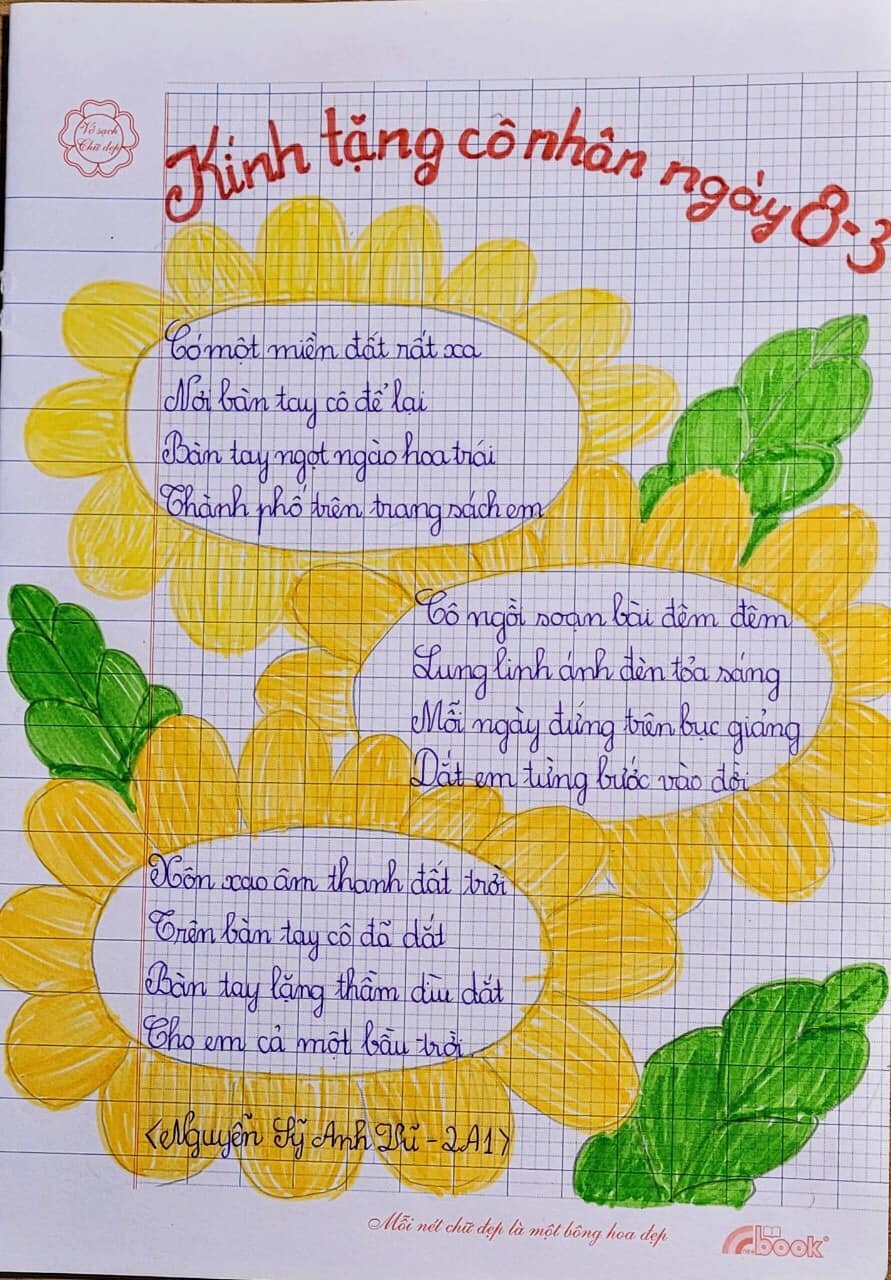 Vở sạch
Chữ đẹp
Kính tặng cô nhân ngày 8-3
Có một miền đất rất xa
Nơi bàn tay cô để lại
Bàn tay ngọt ngào hoa trái
Thành phố trên trang sách em
Cô ngồi soạn bài đêm đêm
Lung linh ánh đèn tỏa sáng
Mỗi ngày đứng trên bục giảng
Dắt em từng bước vào đời
Xôn xao âm thanh đất trời
Trên bàn tay cô đã dắt
Bàn tay lặng thầm dìu dắt
Cho em cả một bầu trời.
<Nguyễn Sỹ Anh Vũ - 2A1>
Mỗi nét chữ đẹp là một bông hoa đẹp
newbook